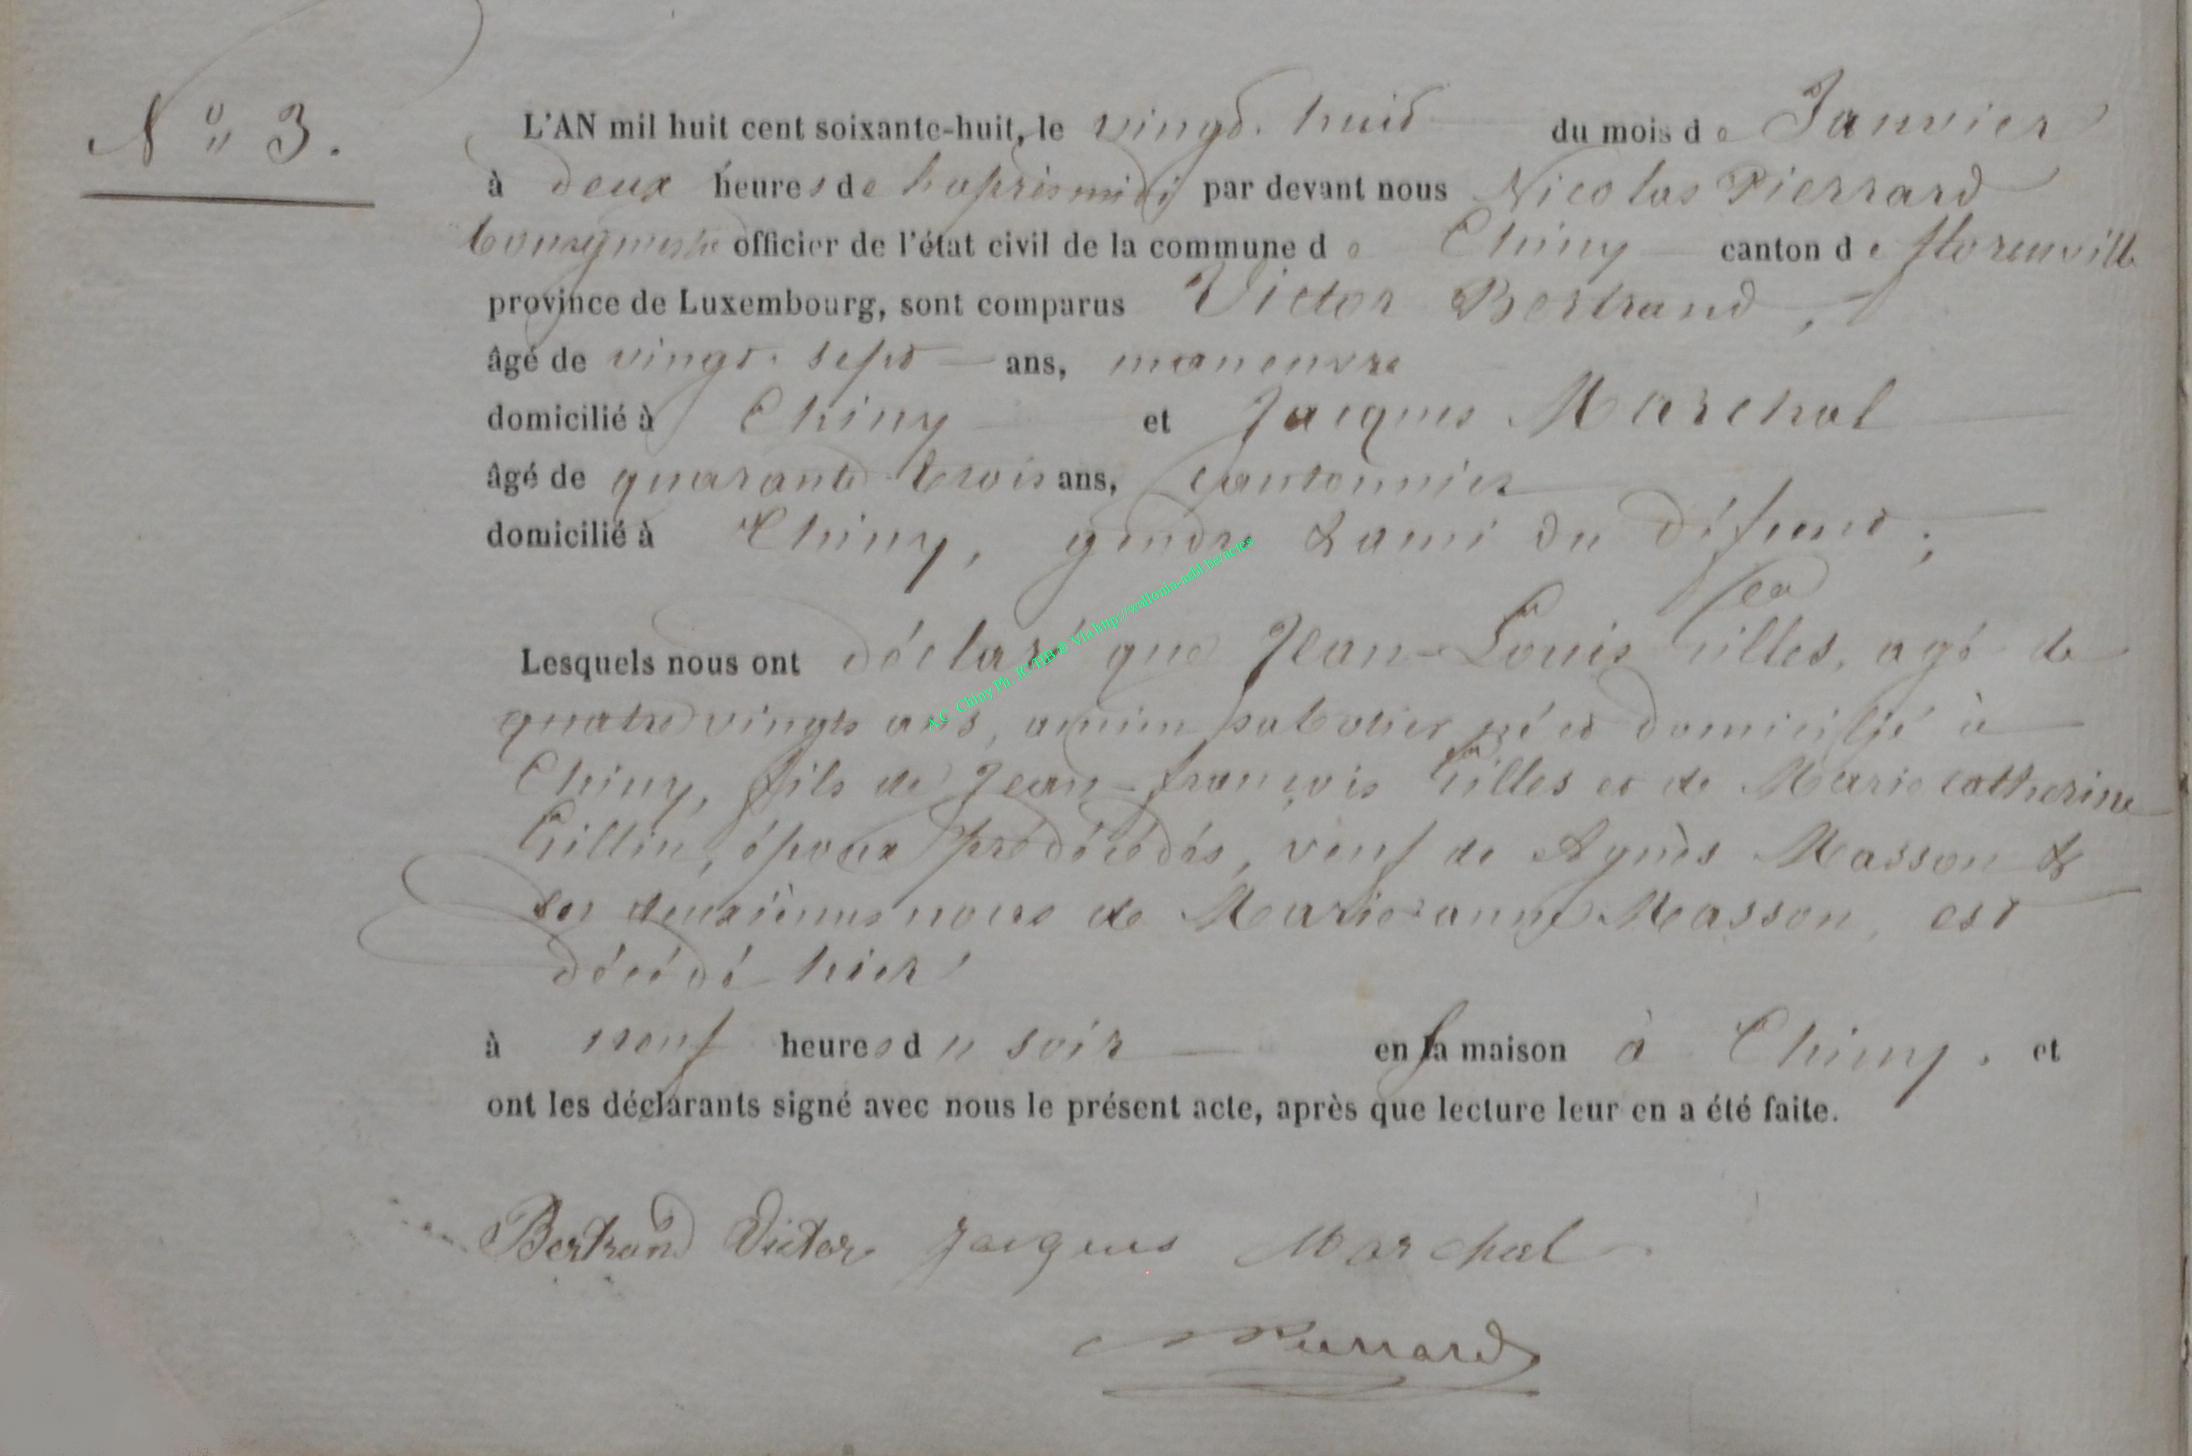 N° 3.
L'AN mil huit cent soixante-huit, le vingt-huit du mois de Janvier
à deux heures de l'aprèsmidi par devant nous Nicolas Pierrard
bourgmestre officier de l'état civil de la commune de Chiny canton de florenville
province de Luxembourg, sont comparus Victor Bertrand,
âgé de vingt-sept ans, manœuvre
domicilié à Chiny et Jacques Marchal
âgé de quarante trois ans, Cantonnier
domicilié à Chiny, gendre & ami du défunt;
Lesquels nous ont déclaré que Jean-Louis Gilles, agé de
quatre vingts ans, ancien sabotier né et domicilié à
Chiny, fils de Jean-françois Gilles et de Marie catherine
Gillin, époux prédécédés, veuf de Agnès Masson &
en deuxièmes noces de Marie anne Masson, est
décédé hier
à neuf heures du soir en sa maison à Chiny. et
ont les déclarants signé avec nous le présent acte, après que lecture leur en a été faite.
Bertrand Victor Jacques Marchal
NPierrard